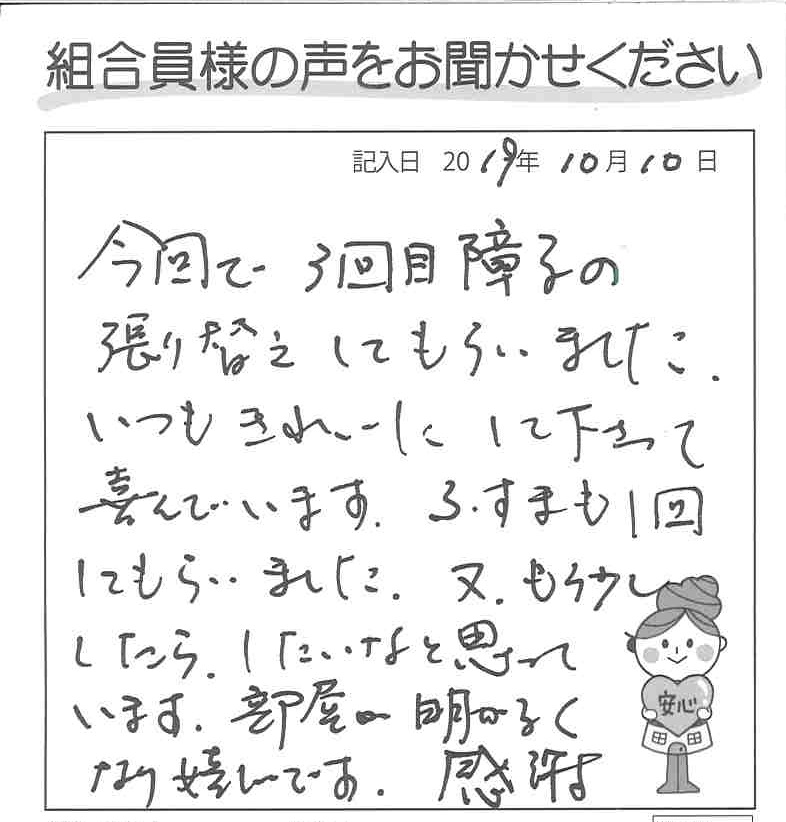 組合員様の声をお聞かせください
記入日 2019年10月10日
今回で 3回目 障子の
張り替え してもらいました.
いつも きれいに して下さって
喜んでいます. ふすまも1回
してもらいました. 又. もう少し
したら. したいなと思って
います. 部屋が 明かるく
なり嬉しいです. 感謝す
安心